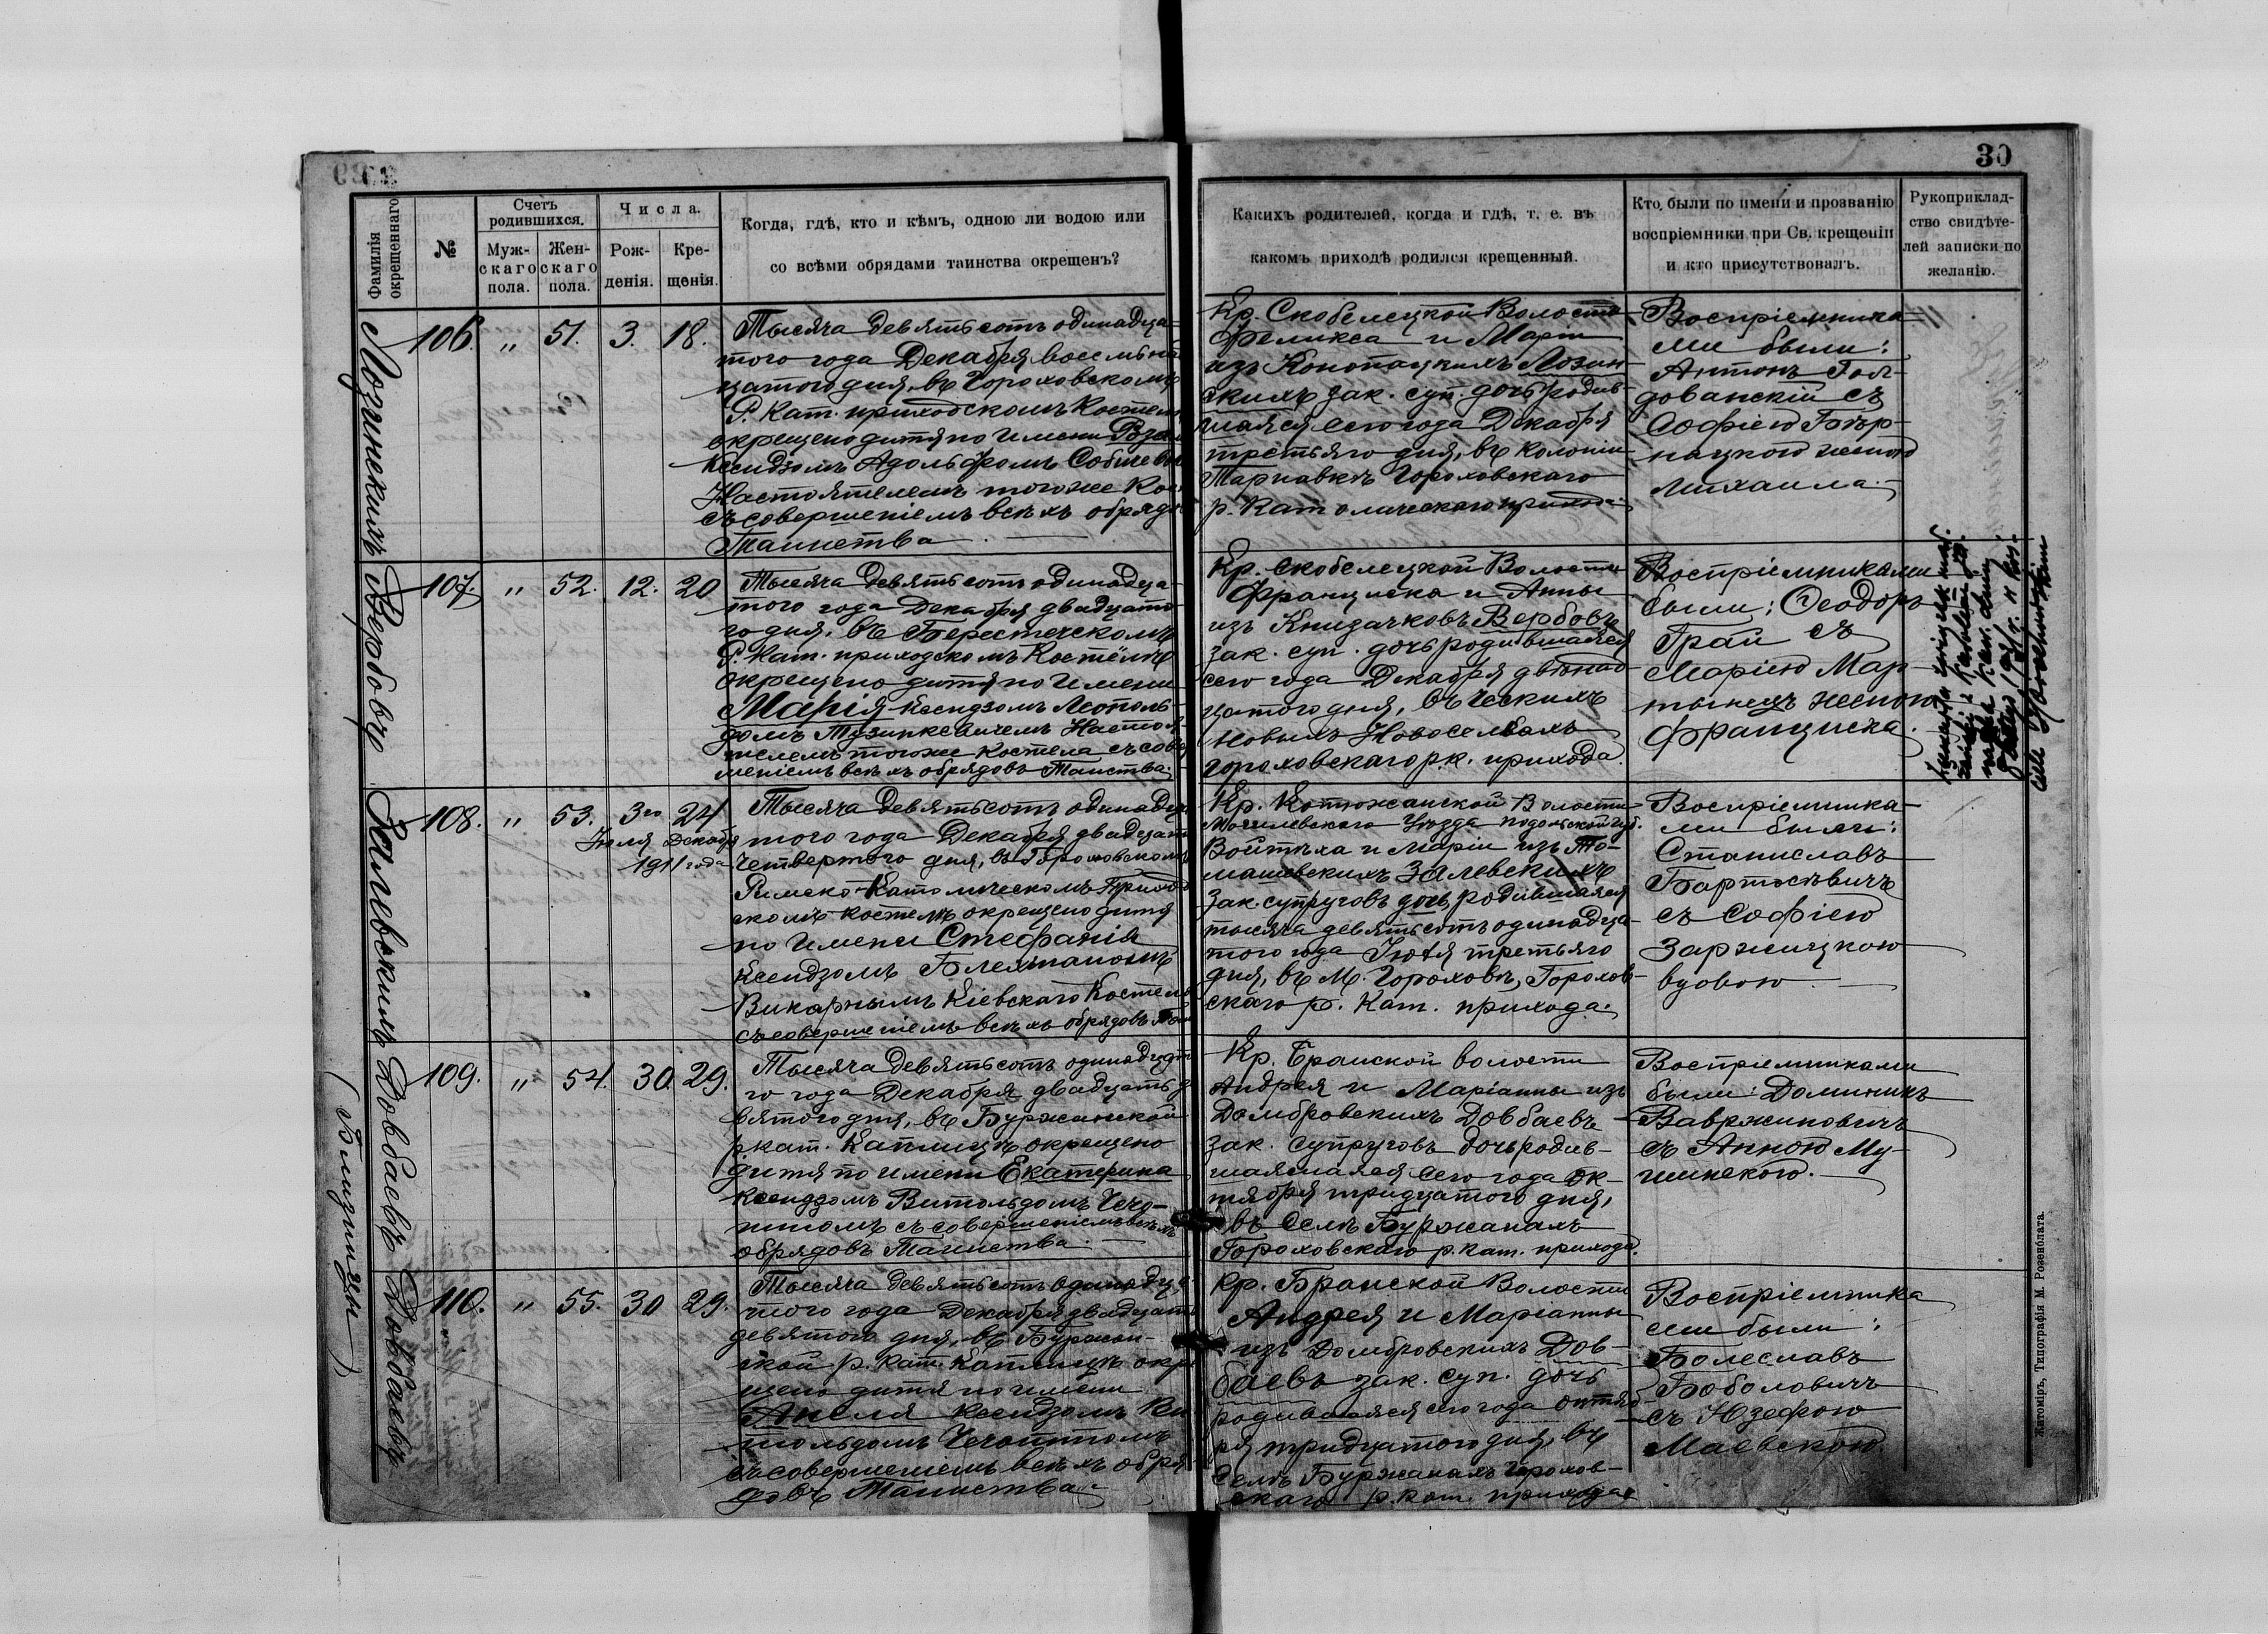 30
Фамилія окрещеннаго
№
Счетъ родившихся.
Муж-скаго пола.
Жен-скаго пола.
Числа.
Рож-денія.
Кре-щенія.
Когда, гдѣ, кто и кѣмъ, одною ли водою или
со всѣми обрядами таинства окрещенъ?
Какихъ родителей, когда и гдѣ, т. е. въ
какомъ приходѣ родился крещенный.
Кто были по имени и прозванію
воспріемники при Св. крещеніи
и кто присутствовалъ.
Рукоприклад-
ство свидѣте-
лей записки по
желанію.
Лозинскихъ
106. " 51. 3. 18.
Тысяча девятьсотъ одинадца-
того года Декабря восемьна
цатого дня, въ Гороховскомъ
Р. Кат. приходскомъ Костел
окрещено дитя по имени
Ксендзомъ Адольфомъ
Настоятелемъ тогоже Кос
съ совершеніемъ всѣхъ обрядо
Таинства
Кр. Скобелецкой Волости
Феликса и Март
изъ Конопацкихъ Лозин-
скихъ зак. суп. дочь родив-
шаяся сего года Декабря
третьяго дня, въ колоніи
Тарнавкѣ Гороховскаго
р. Католическаго прихода.
Воспріемника-
ми были:
Антонъ Гол-
дованскій съ
Софіею
Михаила.
Вербовъ
107. " 52. 12. 20
Тысяча девятьсотъ одинадца-
того года Декабря двадцато-
го дня, въ Берестечскомъ
Р. Кат. приходскомъ Костёлѣ
окрещено дитя по имени
Марія Ксендзомъ Леополь-
домъ Настоя-
телемъ тогоже Костела съ сов
шеніемъ всѣхъ обрядовъ Таинства.
Кр. Скобелецкой Волости
Франциска и Анны
изъ Книзачковъ Вербовъ
зак. суп. дочь родившаяся
сего года Декабря двѣнад-
цатого дня, въ Ческихъ
Новыхъ Новоселкахъ
Гороховскаго р.к. прихода.
Воспріемниками
были: Ѳеодоръ
Грай съ
Маріею Мар-
тынецъ женою
Франциска.
Залевскихъ
108. " 53. 3го 24
Іюля Декабр
1911 года
Тысяча девятьсотъ одинадца
того года Декабря двадцать
четвертого дня, въ Гороховскомъ
Римско-Католическомъ Приход
скомъ костелѣ окрещено дитя
по имени Стефанія
Ксендзомъ
Викарнымъ Кіевскаго Костела
съ совершеніемъ всѣхъ обрядовъ Таи
Кр. Котюжанской Волости
Могилевскаго Уѣзда Подольской губ.
Войтѣха и Маріи изъ То-
машевскихъ Залевскихъ
зак. супруговъ дочь, родившаяся
тысяча девятьсотъ одинадца-
того года Іюля третьяго
дня, въ М. Гороховѣ, Горохов-
скаго р. Кат. прихода.
Воспріемника-
ми были:
Станиславъ
Бартосѣвичъ
съ Софіею
Заржицкою
вдовою.
Довбаевъ
(Близницы)
109. " 54. 30. 29.
Тысяча девятьсотъ одинадцато
го года Декабря двадцать де
вятого дня, въ Буржанской
р.кат. Каплицѣ окрещено
дитя по имени Екатерина
Ксендзомъ Витольдомъ Чечо-
ттомъ съ совершеніемъ всѣхъ
обрядовъ Таинства.
Кр. Бранской волости
Андрея и Маріанны изъ
Домбровскихъ Довбаевъ
зак. супруговъ дочь родив-
шаяся сего года Ок-
тября тридцатого дня,
въ Селѣ Буржанахъ
Гороховскаго р. кат. прихода.
Воспріемниками
были: Доминикъ
Вавржиновичъ
съ Анною Му-
шинскою.
Довбаевъ
110. " 55. 30 29.
Тысяча девятьсотъ одинадца-
того года Декабря двадцать
девятого дня, въ Буржан-
ской р. кат. Каплицѣ окре
щено дитя по имени
Анеля Ксендзомъ Ви
тольдомъ Чечоттомъ
съ совершеніемъ всѣхъ обря-
довъ Таинства.
Кр. Бранской Волости
Андрея и Маріанны
изъ Домбровскихъ Дов-
баевъ зак. суп. дочь
родившаяся сего года октяб
ря тридцатого дня, въ
Селѣ Буржанахъ Горохов-
скаго р. кат. прихода
Воспріемника
ми были:
Болеславъ
Боболовичъ
съ Юзефою
Маевскою.
Житоміръ, Типографія М. Розенблата.